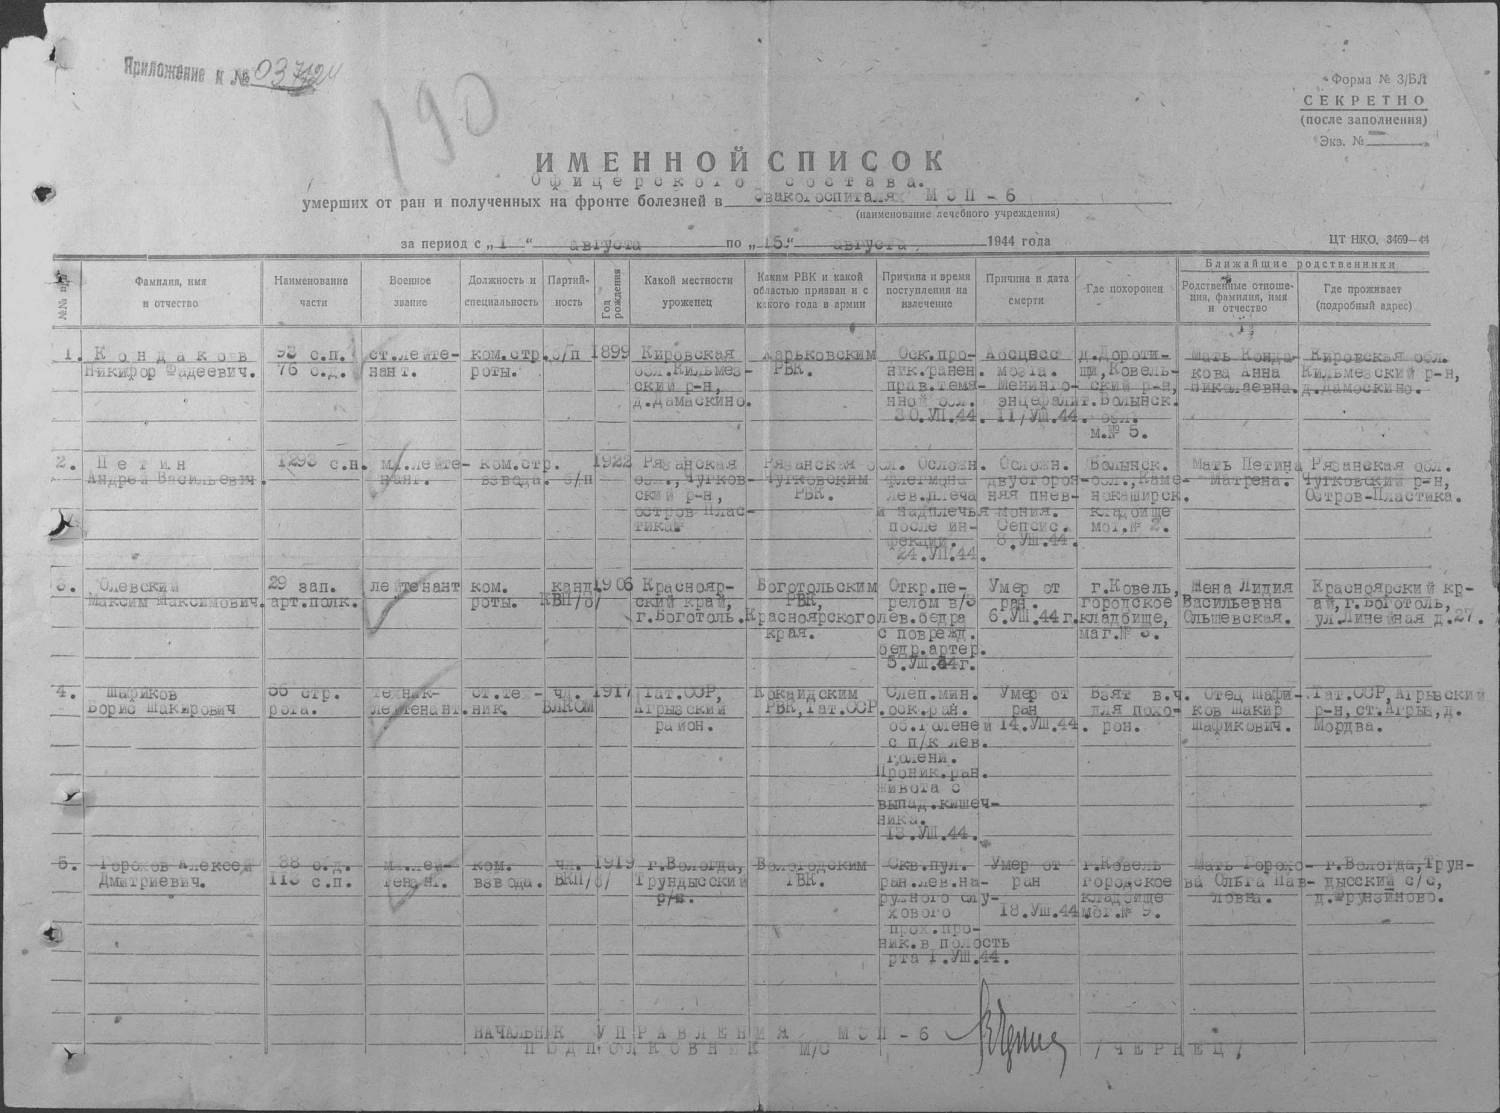 Приложение к № 037424
190
Форма № 3/БЛ
СЕКРЕТНО
(после заполнения)
Экз. №
ИМЕННОЙ СПИСОК
Офицерского состава.
умерших от ран и полученных на фронте болезней в Эвакогоспиталях МЭП-6
(наименование лечебного учреждения)
за период с „1“ августа по „15“ августа 1944 года
ЦТ НКО. 3469—44
№№ п/п
Фамилия, имя
и отчество
Наименование
части
Военное
звание
Должность и
специальность
Партий-
ность
Год рождения
Какой местности
уроженец
Каким РВК и какой
областью призван и с
какого года в армии
Причина и время
поступления на
излечение
Причина и дата
смерти
Где похоронен
Ближайшие родственники
Родственные отноше-
ния, фамилия, имя
и отчество
Где проживает
(подробный адрес)
1.
Кондаков
Никифор Фадеевич.
93 с.п.
76 с.д.
ст.лейте-
нант.
ком.стр.
роты.
б/п
1899
Кировская
обл.Кильмез-
ский р-н,
д.Дамаскино.
Харьковским
РВК.
Оск.про-
ник.ранен.
прав.темя-
нной обл.
30.УП.44.
Абсцесс
мозга.
Менинго-
энцефалит.
11/УШ.44.
д.Дороти-
щи,Ковель-
ский р-н,
Волынск.
обл.
м.№ 5.
Мать Конда-
кова Анна
Николаевна.
Кировская обл.
Кильмезский р-н,
д.Дамоскино.
2.
Петин
Андрей Васильевич.
1293 с.п.
мл.лейте-
нант.
ком.стр.
взвода.
б/п
1922
Рязанская
обл.,Чучков-
ский р-н,
остров Плас-
тика
Рязанская обл.
Чучковским
РВК.
Осложн.
флегмона
лев.плеча
и надплечья
после ин-
фекции.
24.УП.44.
Осложн.
двусторон-
няя пнев-
мония.
Сепсис.
8.УШ.44.
Волынск.
обл.,Каме-
нокаширск.
кладбище
мог.№ 2.
Мать Петина
Матрена.
Рязанская обл.
Чучковский р-н,
Остров-Пластика.
3.
Олевский
Максим Максимович.
29 зап.
арт.полк.
лейтенант
ком.
роты.
канд.
КВП/б/
1906
Краснояр-
ский край,
г.Боготоль.
Боготольским
РВК,
Красноярского
края.
Откр.пе-
релом в/3
лев.бедра
с поврежд.
бедр.артер.
5.УШ.44г.
Умер от
ран.
6.УШ.44г.
г.Ковель,
городское
кладбище,
маг.№ 3.
Жена Лидия
Васильевна
Ольшевская.
Красноярский кр-
ай,г.Боготоль,
ул.Линейная д.27.
4.
Шафиков
Борис Шакирович
56 стр.
рота.
техник-
лейтенант.
ст.тех-
ник.
чл.
ВЛКСМ
1917
Тат.ССР,
Агрызский
район.
РВК,Тат.ССР.
Слеп.мин.
оск.ран.
об.голеней
с п/к лев.
голени.
Проник.ран.
живота с
выпад.кишеч-
ника.
13.УШ.44.
Умер от
ран
14.УШ.44.
Взят в.ч.
для похо-
рон.
Отец Шафи-
ков Шакир
Шафикович.
Тат.ССР,Агрызский
р-н,ст.Агрыз,д.
Мордва.
5.
Горохов Алексей
Дмитриевич.
38 с.д.
113 с.п.
мл.лей-
тенант.
ком.
взвода.
чл.
ВКП/б/
1919
г.Вологда,
Трундысский
с/с.
Вологодским
ГВК.
Скв.пул.
ран.лев.на-
ружного слу-
хового
прох.про-
ник.в полость
рта 1.УШ.44.
Умер от
ран
18.УШ.44
г.Ковель
городское
кладбище
мог.№ 9.
Мать Горохо-
ва Ольга Пав-
ловна.
г.Вологда,Трун-
дысский с/с,
д.Фрунзиново.
НАЧАЛЬНИК УПРАВЛЕНИЯ МЭП-6
ПОДПОЛКОВНИК М/С /ЧЕРНЕЦ/